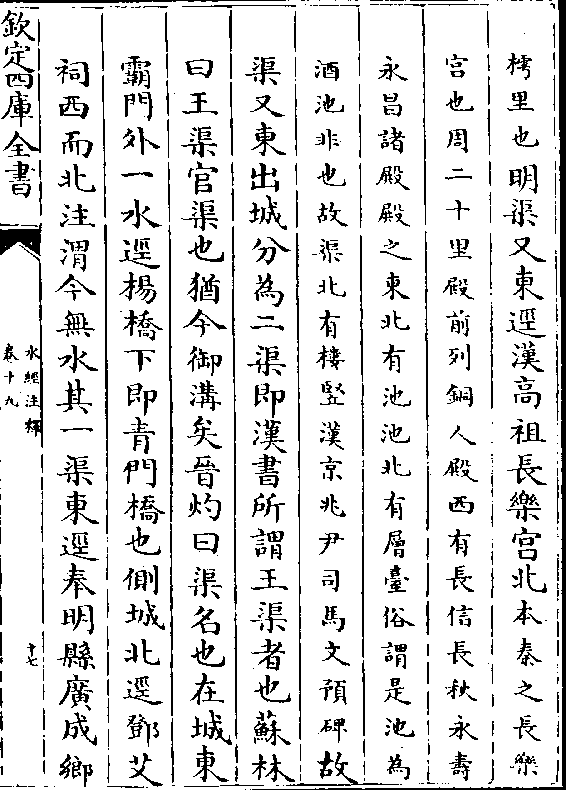 樗里也明渠又東逕漢高祖長樂宫北本秦之長樂
宫也周二十里殿前列銅人殿西有長信長秋永壽
永昌諸殿殿之東北有池池北有層臺俗謂是池為
酒池非也故渠北有樓竪漢京兆尹司馬文預碑故
渠又東出城分為二渠即漢書所謂王渠者也蘇林
曰王渠官渠也猶今御溝矣晉灼曰渠名也在城東
霸門外一水逕楊橋下即青門橋也側城北逕鄧艾
祠西而北注渭今無水其一渠東逕奉明縣廣成鄉
欽定四庫全書
水經注釋
卷十九
十七